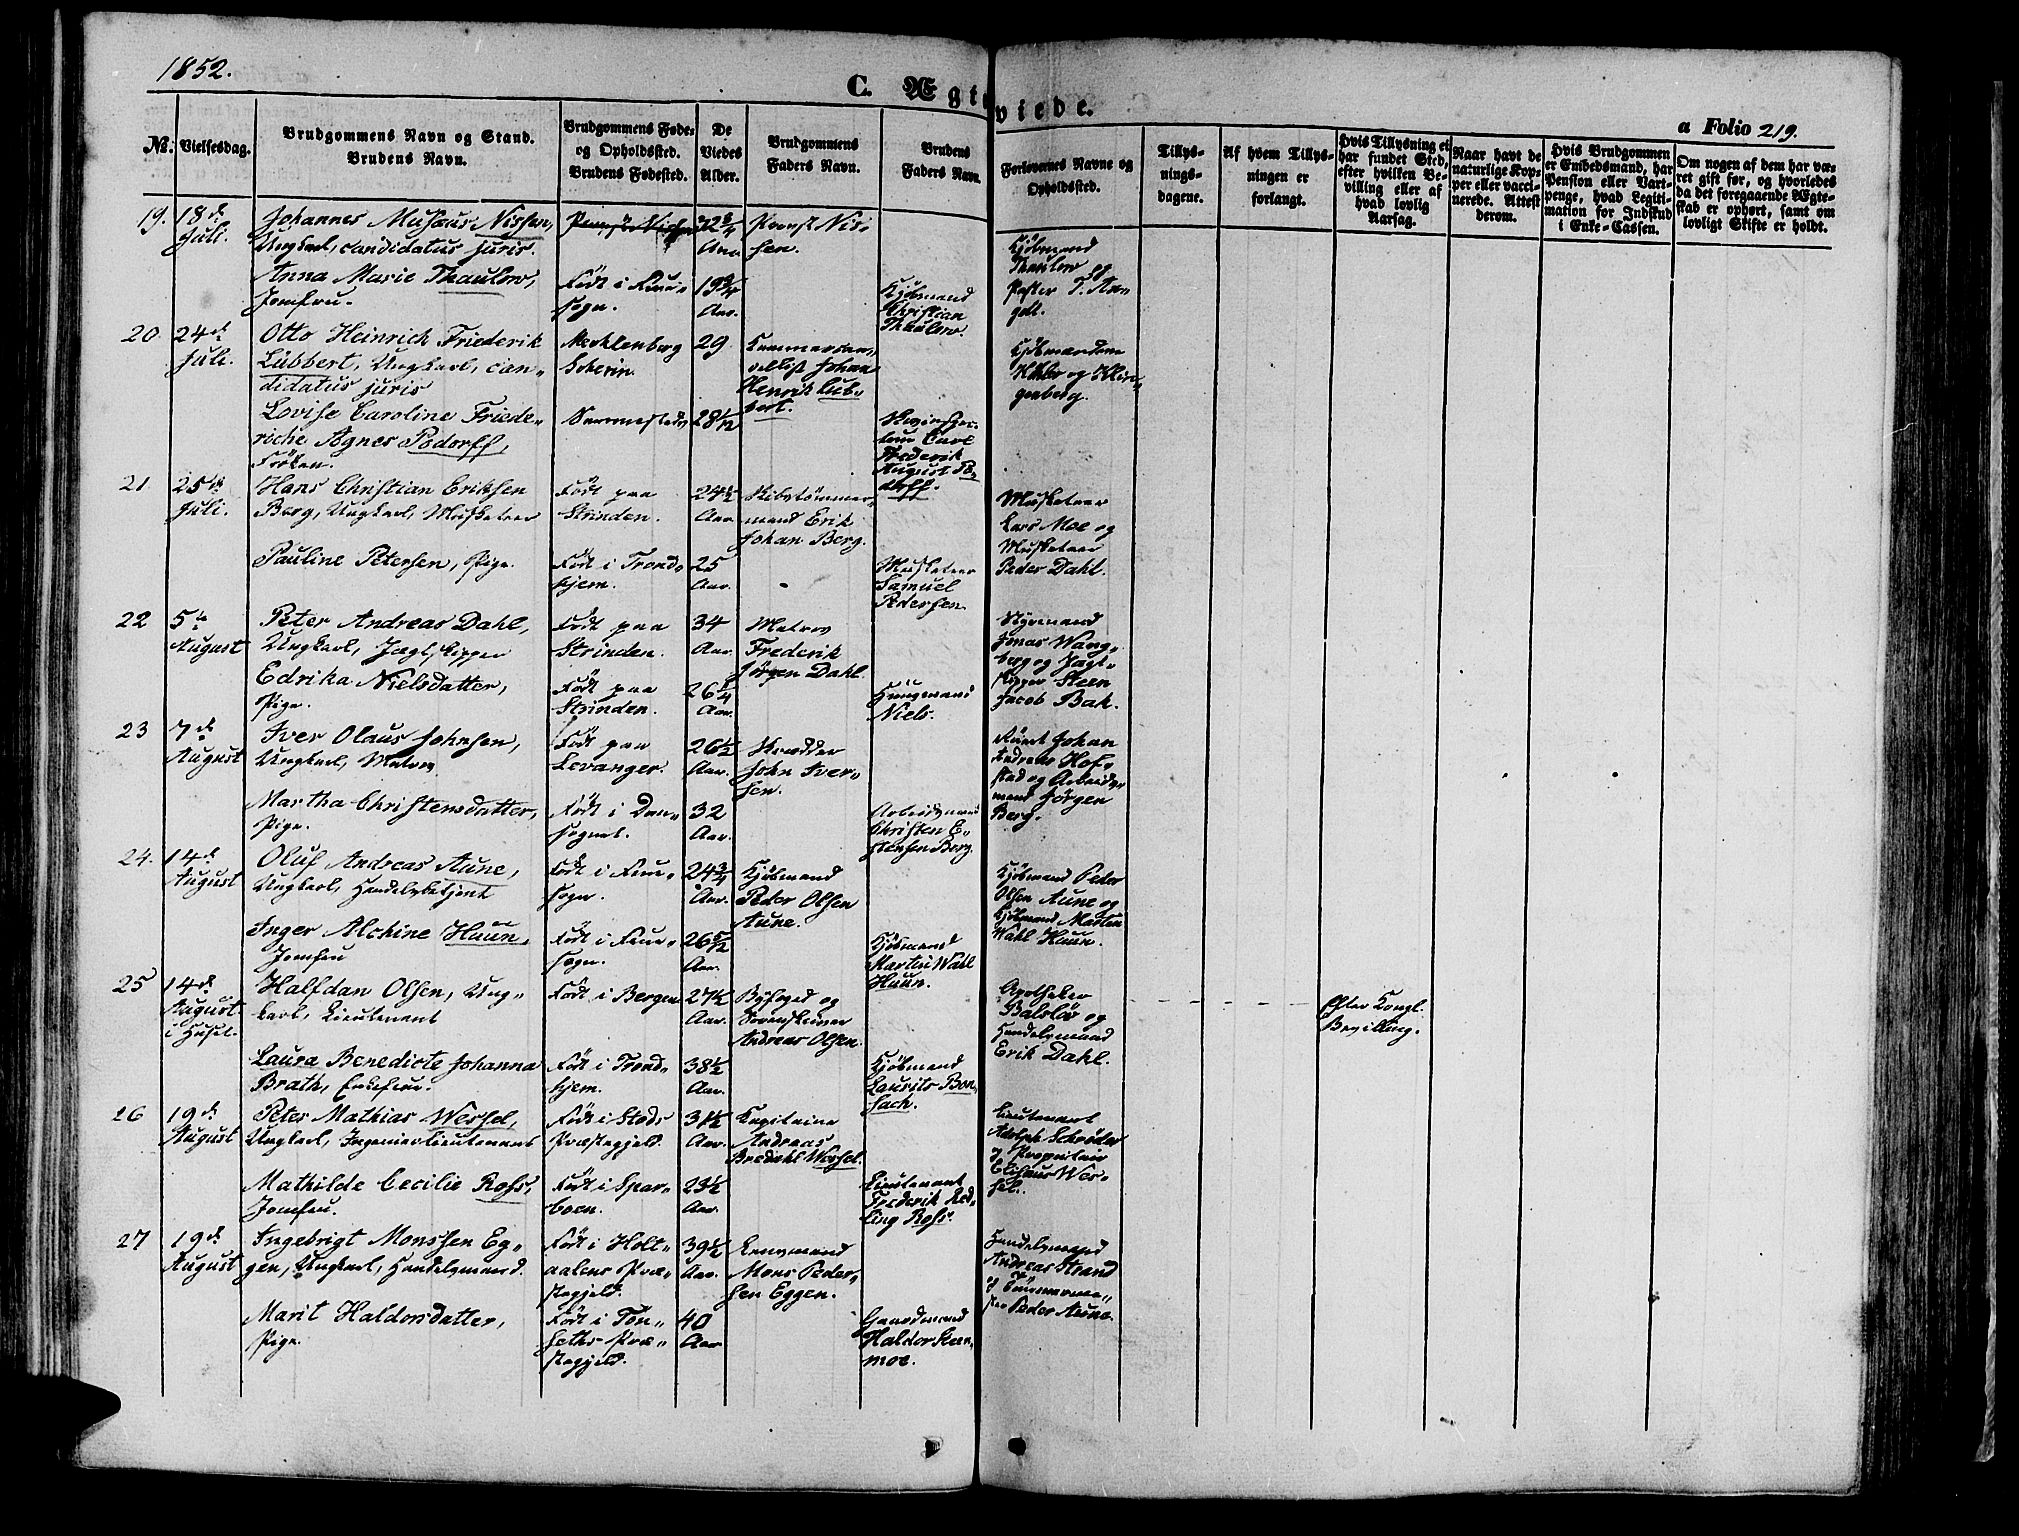 1852.
C. Ægteviede.
a Folio 219.
No. Vielsesdag.
Brudgommens Navn og Stand.
Brudens Navn.
Brudgommens Føde-
og Opholdssted.
Brudens Fødested.
De
Viedes
Alder.
Brudgommens
Faders Navn.
Brudens
Faders Navn.
Forlovernes Navne og
Opholdssted.
Tillys-
nings-
dagene.
Af hvem Tillys-
ningen er
forlangt.
Hvis Tillysning ei
har fundet Sted,
efter hvilken Be-
villing eller af
hvad lovlig
Aarsag.
Naar havt de
naturlige Kop-
per eller vacci-
nerede. Attest
derom.
Hvis Brudgommen
er Embedsmand, har
Pension eller Vart-
penge, hvad Legiti-
mation for Indskud
i Enke-Cassen.
Om nogen af dem har væ-
ret gift før, og hvorledes
da det foregaaende Ægte-
skab er ophørt, samt om
lovligt Skifte er holdt.
19. 18de
Juli.
Johannes Musæus Nissen,
Ungkarl, candidatus juris.
Anna Marie Thaulow,
Jomfru.
Født i Frue-
sogn.
Aar.
19 3/4
Aar.
Provst Nis-
sen.
Kjöbmand
Christian
Thaulow.
Kjöbmand
Thaulow og
Pastor T. An-
gell.
20. 24de
Juli.
Otto Heinrich Friederik
Lübbert, Ungkarl, can-
didatus juris
Lovise Caroline Friede-
riche Agnes Podorff,
Frøken.
Mecklenberg
Scherin.
29
28 1/2
Johan
Henrik Lüb-
bert.
Carl
Frederik
August Po-
dorff.
Kjöbmændene
og Klin-
genberg.
21 25de
Juli.
Hans Christian Eriksen
Berg, Ungkarl, Musketeer
Pauline Petersen, Pige.
Født paa
Strinden.
Født i Trond-
hjem.
24 1/2
Aar
25
Aar.
Skibstömmer-
mand Erik
Johan Berg.
Musketeer
Samuel
Pedersen.
Musketeer
Lars Moe og
Musketeer
Peder Dahl.
22 5te
August
Peter Andreas Dahl,
Ungkarl, Jægtskipper
Edrika Nielsdatter,
Pige.
Født paa
Strinden.
Født paa
Strinden.
34
Aar.
26 1/4
Aar.
Matros
Frederik
Jørgen Dahl.
Huusmand
Niels.
Styrmand
Jonas Wang-
berg og Jægt-
skipper Steen
Jacob Bak.
23 7de
August
Iver Olaus Johnsen,
Ungkarl, Matros
Martha Christensdatter,
Pige.
Født paa
Levanger.
Født i Dom-
sognet.
26 1/2
Aar.
32
Aar.
Skrædder
John Iver-
sen.
Arbeidsmand
Christen E-
stensen Berg.
Johan
Andreas Hof-
stad og Arbeids-
mand Jørgen
Berg.
24. 14de
August
Oluf Andreas Aune,
Ungkarl, Handelsbetjent
Inger Alchine Huun,
Jomfru
Født i Frue-
sogn.
Født i Frue-
sogn.
24 3/4
Aar.
26 1/2
Aar.
Kjöbmand
Peder Olsen
Aune.
Kjöbmand
Martin Wahl
Huun.
Kjöbmand Peder
Olsen Aune og
Kjöbmand Martin
Wahl Huun.
25 14de
August
i Huset.
Halfdan Olsen, Ung-
karl, Lieutenant
Laura Benedicte Johanna
Brath, Enkefrue.
Født i Bergen
Født i Trond-
hjem.
27 1/2
Aar.
38 1/2
Aar.
Byfoged og
Sorenskriver
Andreas Olsen.
Kjöbmand
Laurits Bon-
sach.
Apotheker
Balslöv og
Handelsmand
Erik Dahl.
Efter Kongl.
Bevilling.
26 19de
August
Peter Mathias Wessel,
Ungkarl, Ingenieurlieutenant
Mathilde Cecilie Ross,
Jomfru.
Født i Stods
Præstegjeld.
Født i Spar-
boen.
31 1/2
Aar.
23 1/2
Aar.
Kapitaine
Andreas
Bredahl Wessel.
Lieutenant
Frederik Red-
ling Ross.
Lieutenant
Adolph Schrøder
og Proprietair
Wes-
sel.
27 19de
August
Ingebrigt Monssen Eg-
gen, Ungkarl, Handelsmand.
Marit Haldorsdatter,
Pige.
Født i Holt-
aalens Præ-
stegjeld.
Født i Ton-
seths Præ-
stegjeld.
39 1/2
Aar.
40
Aar
Mons Peder-
sen Eggen.
Gaardmand
Haldor Steen-
moe.
Handelsmand
Andreas Strand
og Tömmerme-
ster Peder Aune.